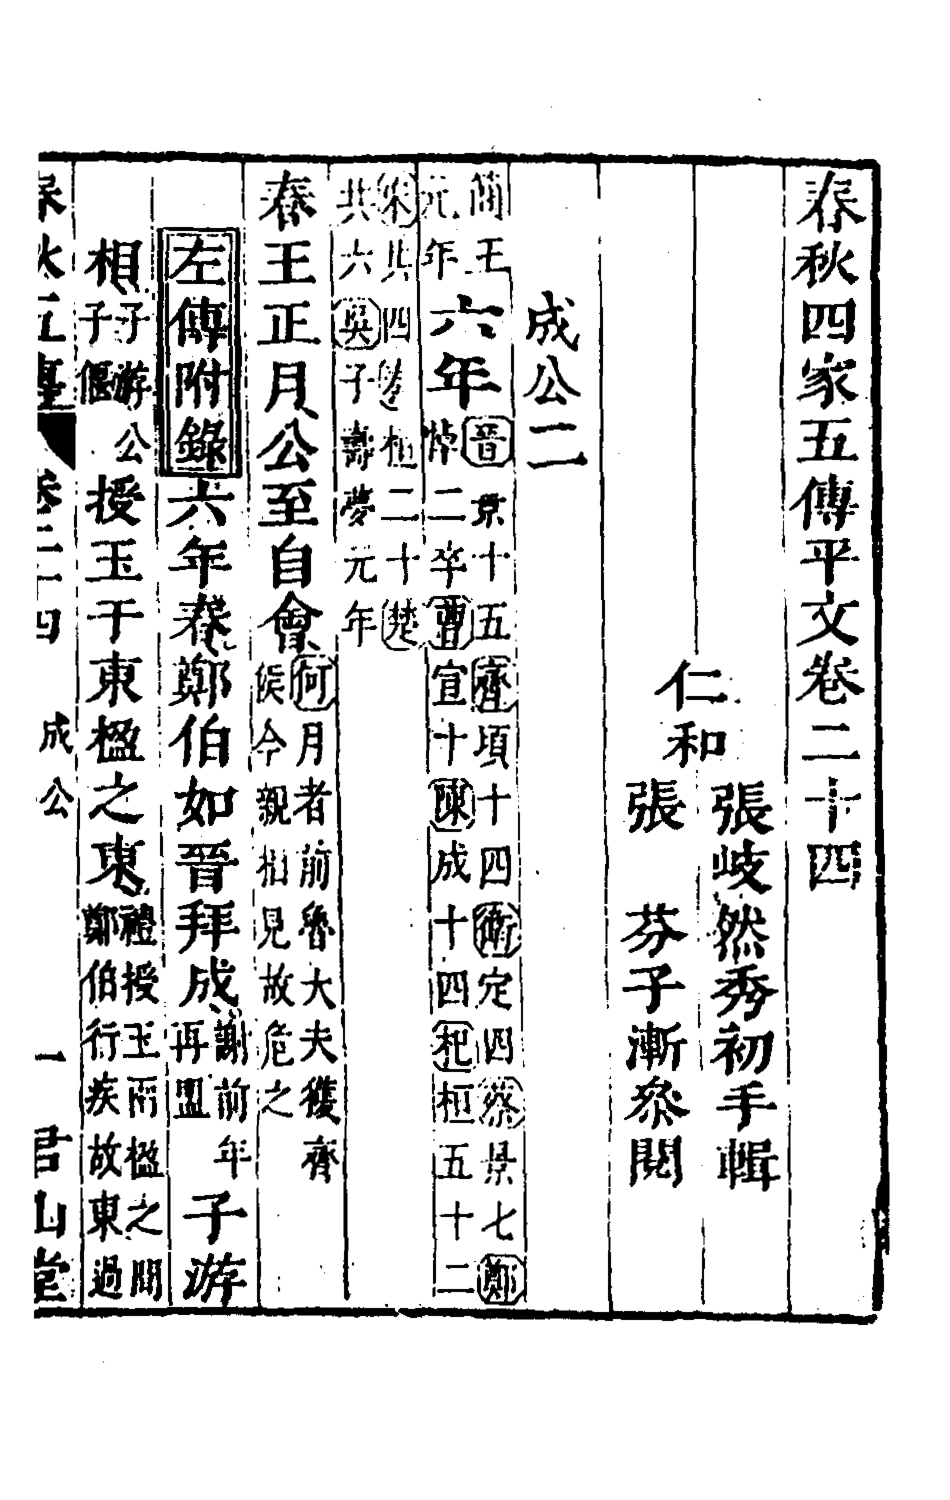 春秋四家五傳平文卷二十四
仁和
張岐然秀初手輯
張　芬子漸叅閱
成公二
簡王
元年
六年
晉景十五齊項十四衛定四蔡景七鄭
悼二卒曹宣十陳成十四杞桓五十二
宋共四秦桓二十楚
共六吳子壽夢元年
春王正月公至自會
何月者前魯大夫獲齊
侯今親相見故危之
左傳附錄
六年春鄭伯如晉拜成
謝前年
再盟
子游
相
子游公
子偃
授玉于東楹之東
禮授玉兩楹之間
鄭伯行疾故東過
春秋五傳
卷二十四
成公
一
君山堂